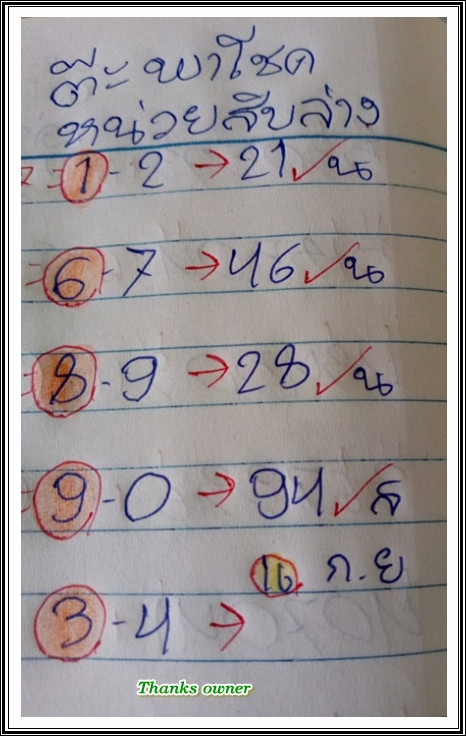 ต๊ะ พาโชค
หน่วยสิบล่าง
1-2 → 21 ✓ น
6-7 → 46 ✓ น
8-9 → 28 ✓ น
9-0 → 94 ✓ ส
16 ก.ย
3-4 →
Thanks owner